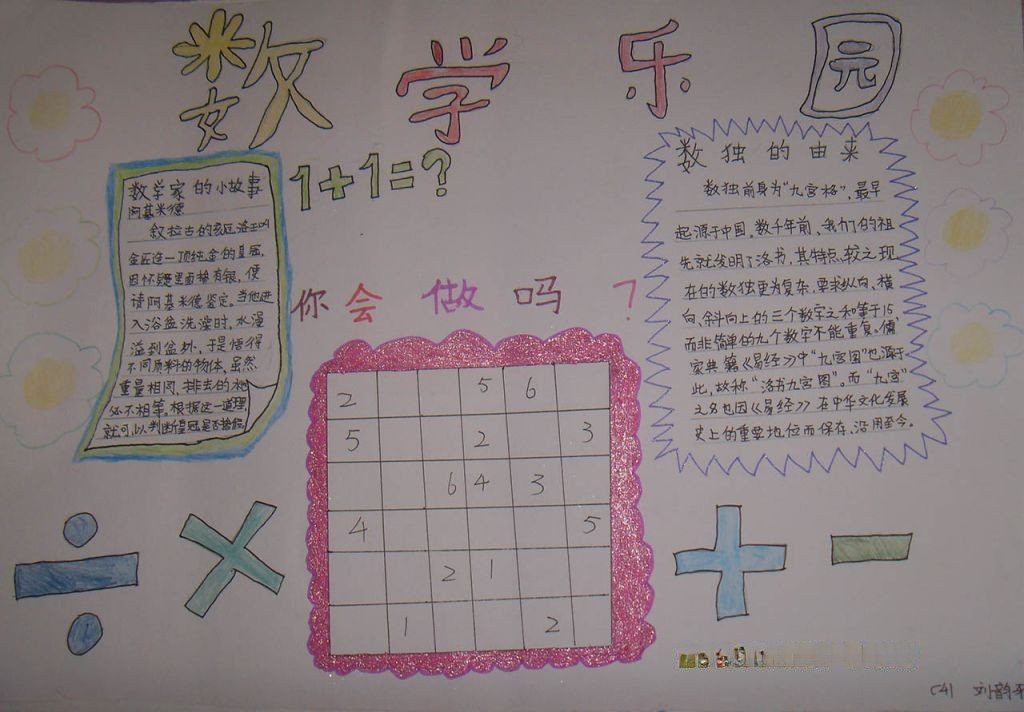 数学乐园
1+1=?
数学家的小故事
阿基米德
叙拉古的
金匠造一顶纯金的皇冠,
因怀疑里面掺有银,便
请阿基米德鉴定。当他进
入浴盆洗澡时,水漫
溢到盆外,于是悟得
不同质料的物体,虽然
重量相同,排去的水
必不相等。根据这一道理,
就可以判断皇冠是否掺假
数独的由来
数独前身为“九宫格”,最早
起源于中国。数千年前,我们的祖
先就发明了洛书,其特点较之现
在的数独更为复杂,要求纵向、横
向、斜向上的三个数字之和等于15,
而非简单的九个数字不能重复。儒
家典籍《易经》中“九宫图”也源于
此,故称“洛书九宫图”。而“九宫”
之名也因《易经》在中华文化发展
史上的重要地位而保存、沿用至今。
你会做吗?
2 5 6
5 2 3
6 4 3
4 5
2 1
1 2
÷ × + −
(4) 刘韵